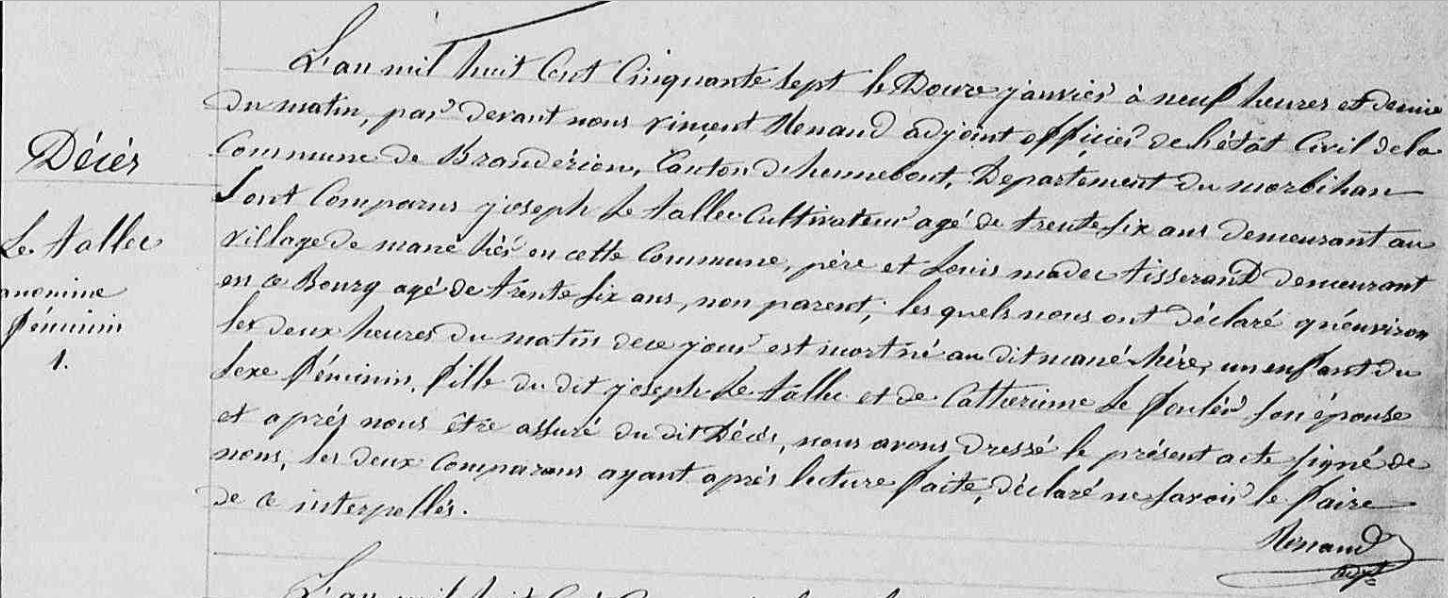 L'an mil huit Cent Cinquante sept le Douze janvier à neuf heures et demie
du matin, par devant nous vincent Renaud adjoint officier de l'état Civil de la
Décès
Commune de Brandérion, Canton d'hennebont, Departement du morbihan
Sont Comparus joseph Le tallec Cultivateur agé de trente six ans demeurant au
Le tallec
village de mané hér en cette Commune, père et Louis madec tisserand demeurant
anonime
en ce Bourg agé de trente six ans, non parent; les quels nous ont déclaré qu'environ
féminin
les deux heures du matin de ce jour est mort né au dit mané hère, un enfant du
1.
sexe féminin, fille du dit joseph Le tallec et de Catherinne Le Fouler son épouse
et après nous être assuré du dit Décès, nous avons dressé le présent acte signé de
nous, les deux Comparans ayant après lecture faite, déclaré ne savoir le faire
de ce interpellés.
Renaud
adjt
L'an mil huit Cent